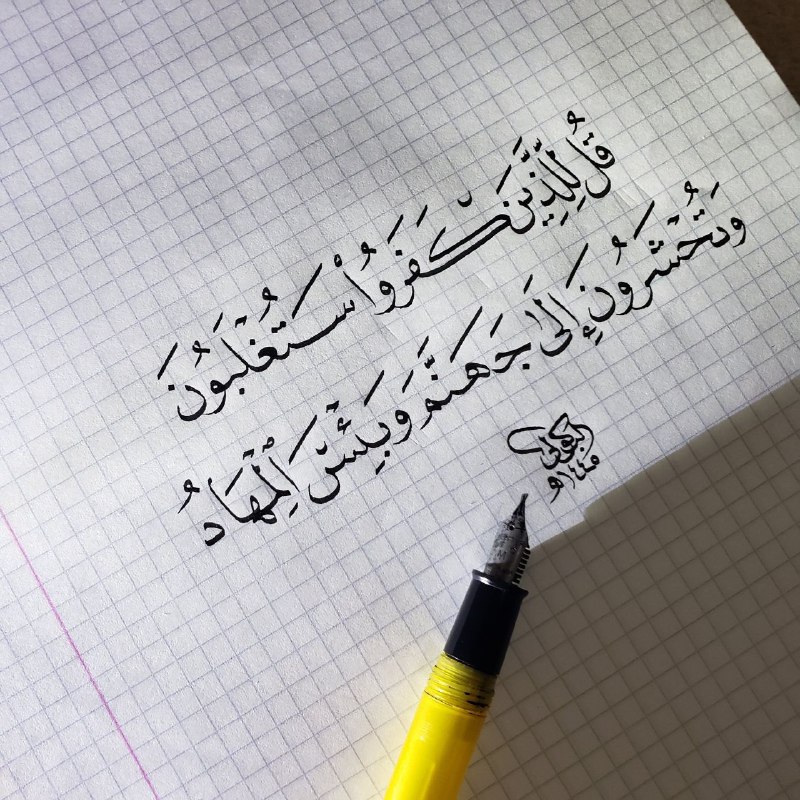 قُل لِّلَّذِينَ كَفَرُوا۟ سَتُغْلَبُونَ
وَتُحْشَرُونَ إِلَىٰ جَهَنَّمَ وَبِئْسَ ٱلْمِهَادُ